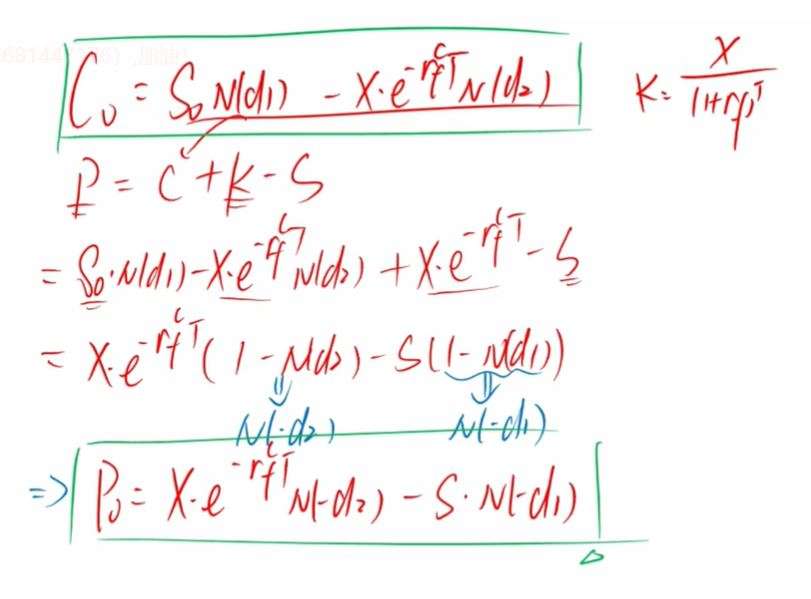 C₀ = S₀N(d₁) - X·e^(-r_f^c T) N(d₂)
K = X / (1+r_f)^T
P = C + K - S
= S₀·N(d₁) - X·e^(-r_f^c T) N(d₂) + X·e^(-r_f^c T) - S
= X·e^(-r_f^c T) (1 - N(d₂)) - S(1 - N(d₁))
⇓ ⇓
N(-d₂) N(-d₁)
=> P₀ = X·e^(-r_f^c T) N(-d₂) - S·N(-d₁)